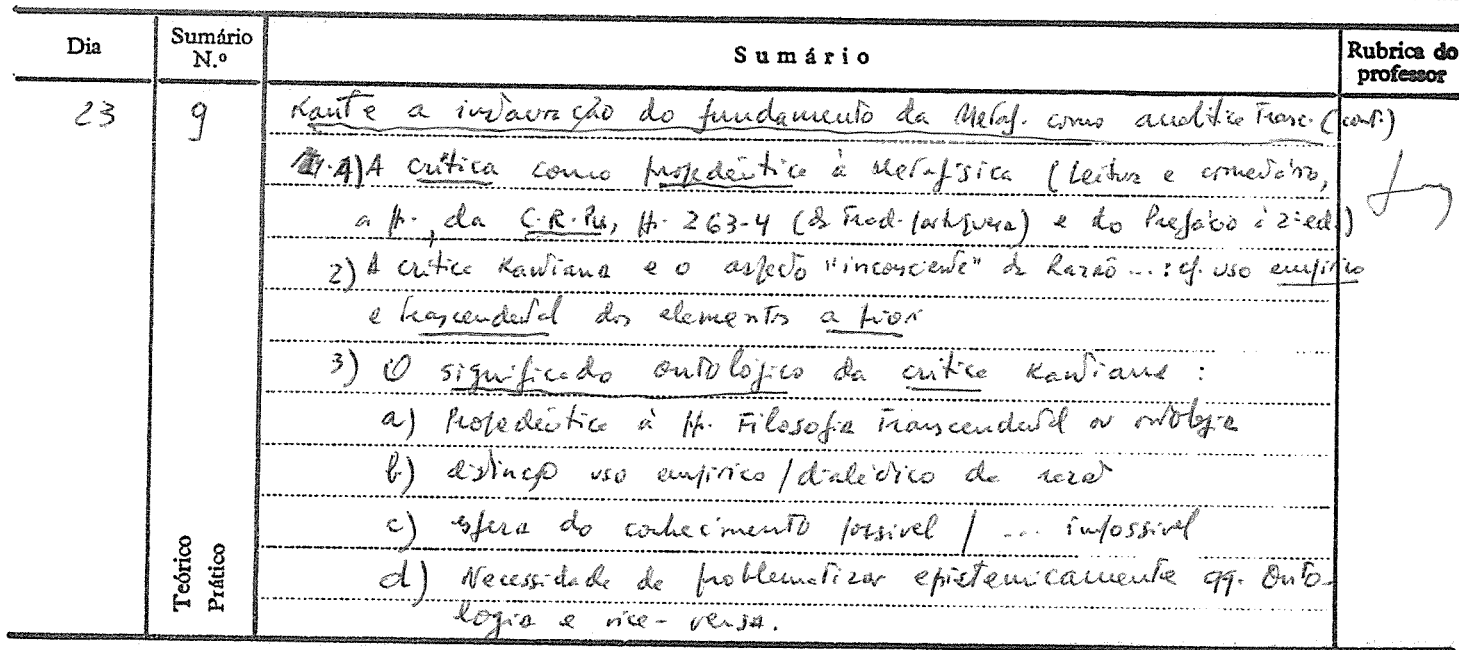 Dia Sumário N.º Sumário Rubrica do professor
23 9 Kant e a instauração do fundamento da Metaf. como analítica Trasc. (cont.)
1) A crítica como propedêutica à Metafísica (Leitura e comentário,
a p. da C.R.Pu, p. 263-4 (da Trad. portuguesa) e do Prefácio à 2ª ed.)
2) A crítica Kantiana e o aspecto "inconsciente" da Razão ... : cf. uso empírico
e transcendental dos elementos a priori
3) O significado ontológico da crítica Kantiana :
a) Propedêutica à p. Filosofia Transcendental ou ontologia
b) distinção uso empírico / dialéctico da razão
c) esfera do conhecimento possível / ... impossível
d) Necessidade de problematizar epistemicamente qq. Onto-
logia e vice-versa.
Teórico
Prático